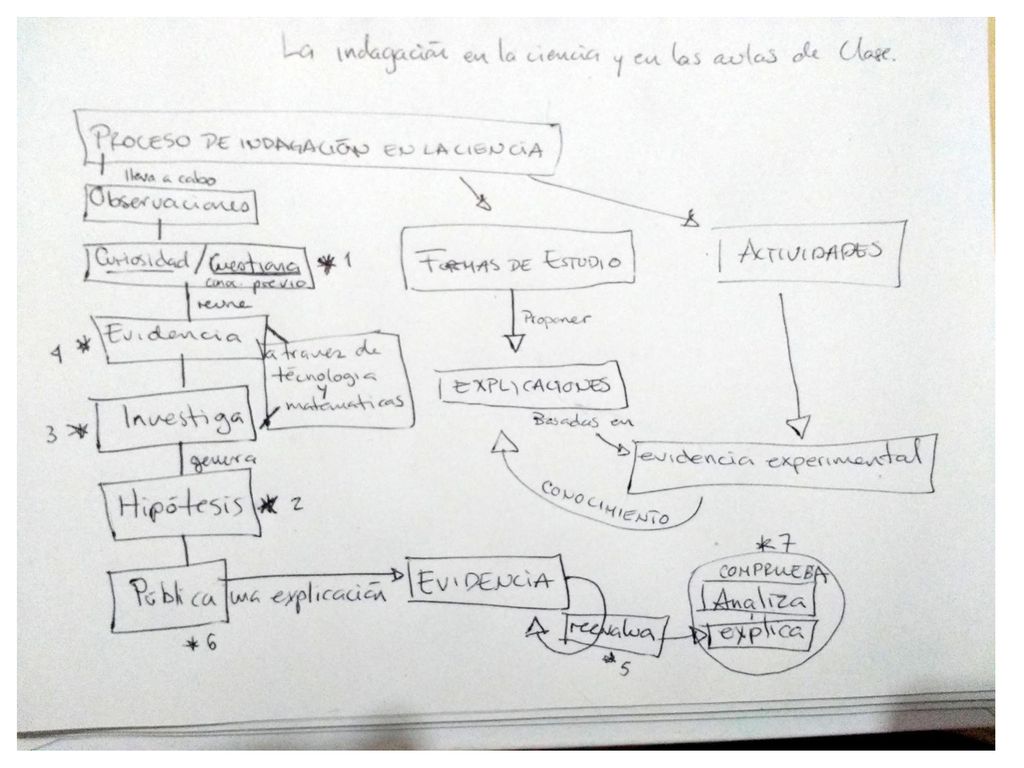 La indagación en la ciencia y en las aulas de Clase.
PROCESO DE INDAGACIÓN EN LA CIENCIA
lleva a cabo
Observaciones
Curiosidad / Cuestiona * 1
cono. previo
reune
4 * Evidencia
a travez de
técnologia
y
matematicas
3 * Investiga
genera
Hipótesis * 2
Pública una explicación
* 6
EVIDENCIA
reevalua
* 5
* 7
COMPRUEBA
Analiza
explica
FORMAS DE ESTUDIO
Proponer
EXPLICACIONES
Basadas en
ACTIVIDADES
evidencia experimental
CONOCIMIENTO